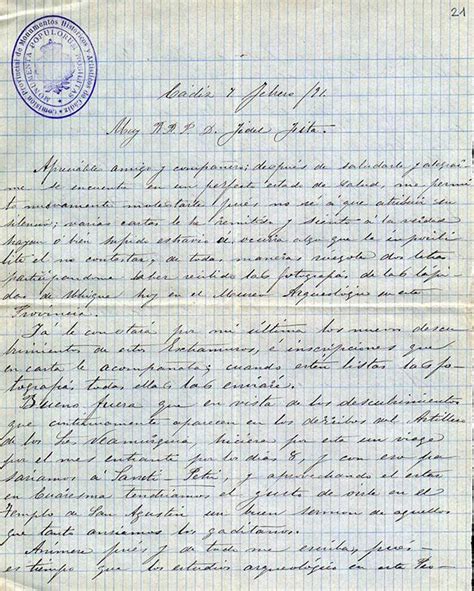 21
Comisión Provincial de Monumentos Históricos y Artísticos de Cádiz
Cadiz 7 Febrero/91.
Muy R.P. D. Fidel Fita.
Apreciable amigo y compañero: despues de saludarle y
me se encuentre en un perfecto estado de salud, me permi
to nuevamente molestarle pues no sé á que atribuir su
silencio; varias cartas le he remitido y siento á la
hayan o bien sufrido estravio ó ocurra algo que le imposibi
lite el no contestar, de todas maneras ruegole dos letras
participandome haber recibido las fotografias de las lapi
das de Ubrique hoy en el Museo Arqueológico en esta
Provincia.
Ya le contará por mi última los nuevos descu
brimientos de estos é inscripciones que
en carta le acompañaba; cuando esten listas las fo
tografias todas ellas las enviaré.
Bueno fuera que en vista de los descubrimientos
que continuamente aparecen en los del Astillero
de los Sres Veamurguia hiciera por esta un viage
por el mes entrante por los dias 8, y con eso pa
sariamos á Sancti Petri, y aprovechando el estar
en Cuaresma tendriamos el gusto de oirle en el
Templo de San Agustin un buen sermon de aquellos
que tanto ansiamos los gaditanos.
Animese pues y de todo me escriba, pues
es tiempo que los estudios arqueológicos en esta Pro-